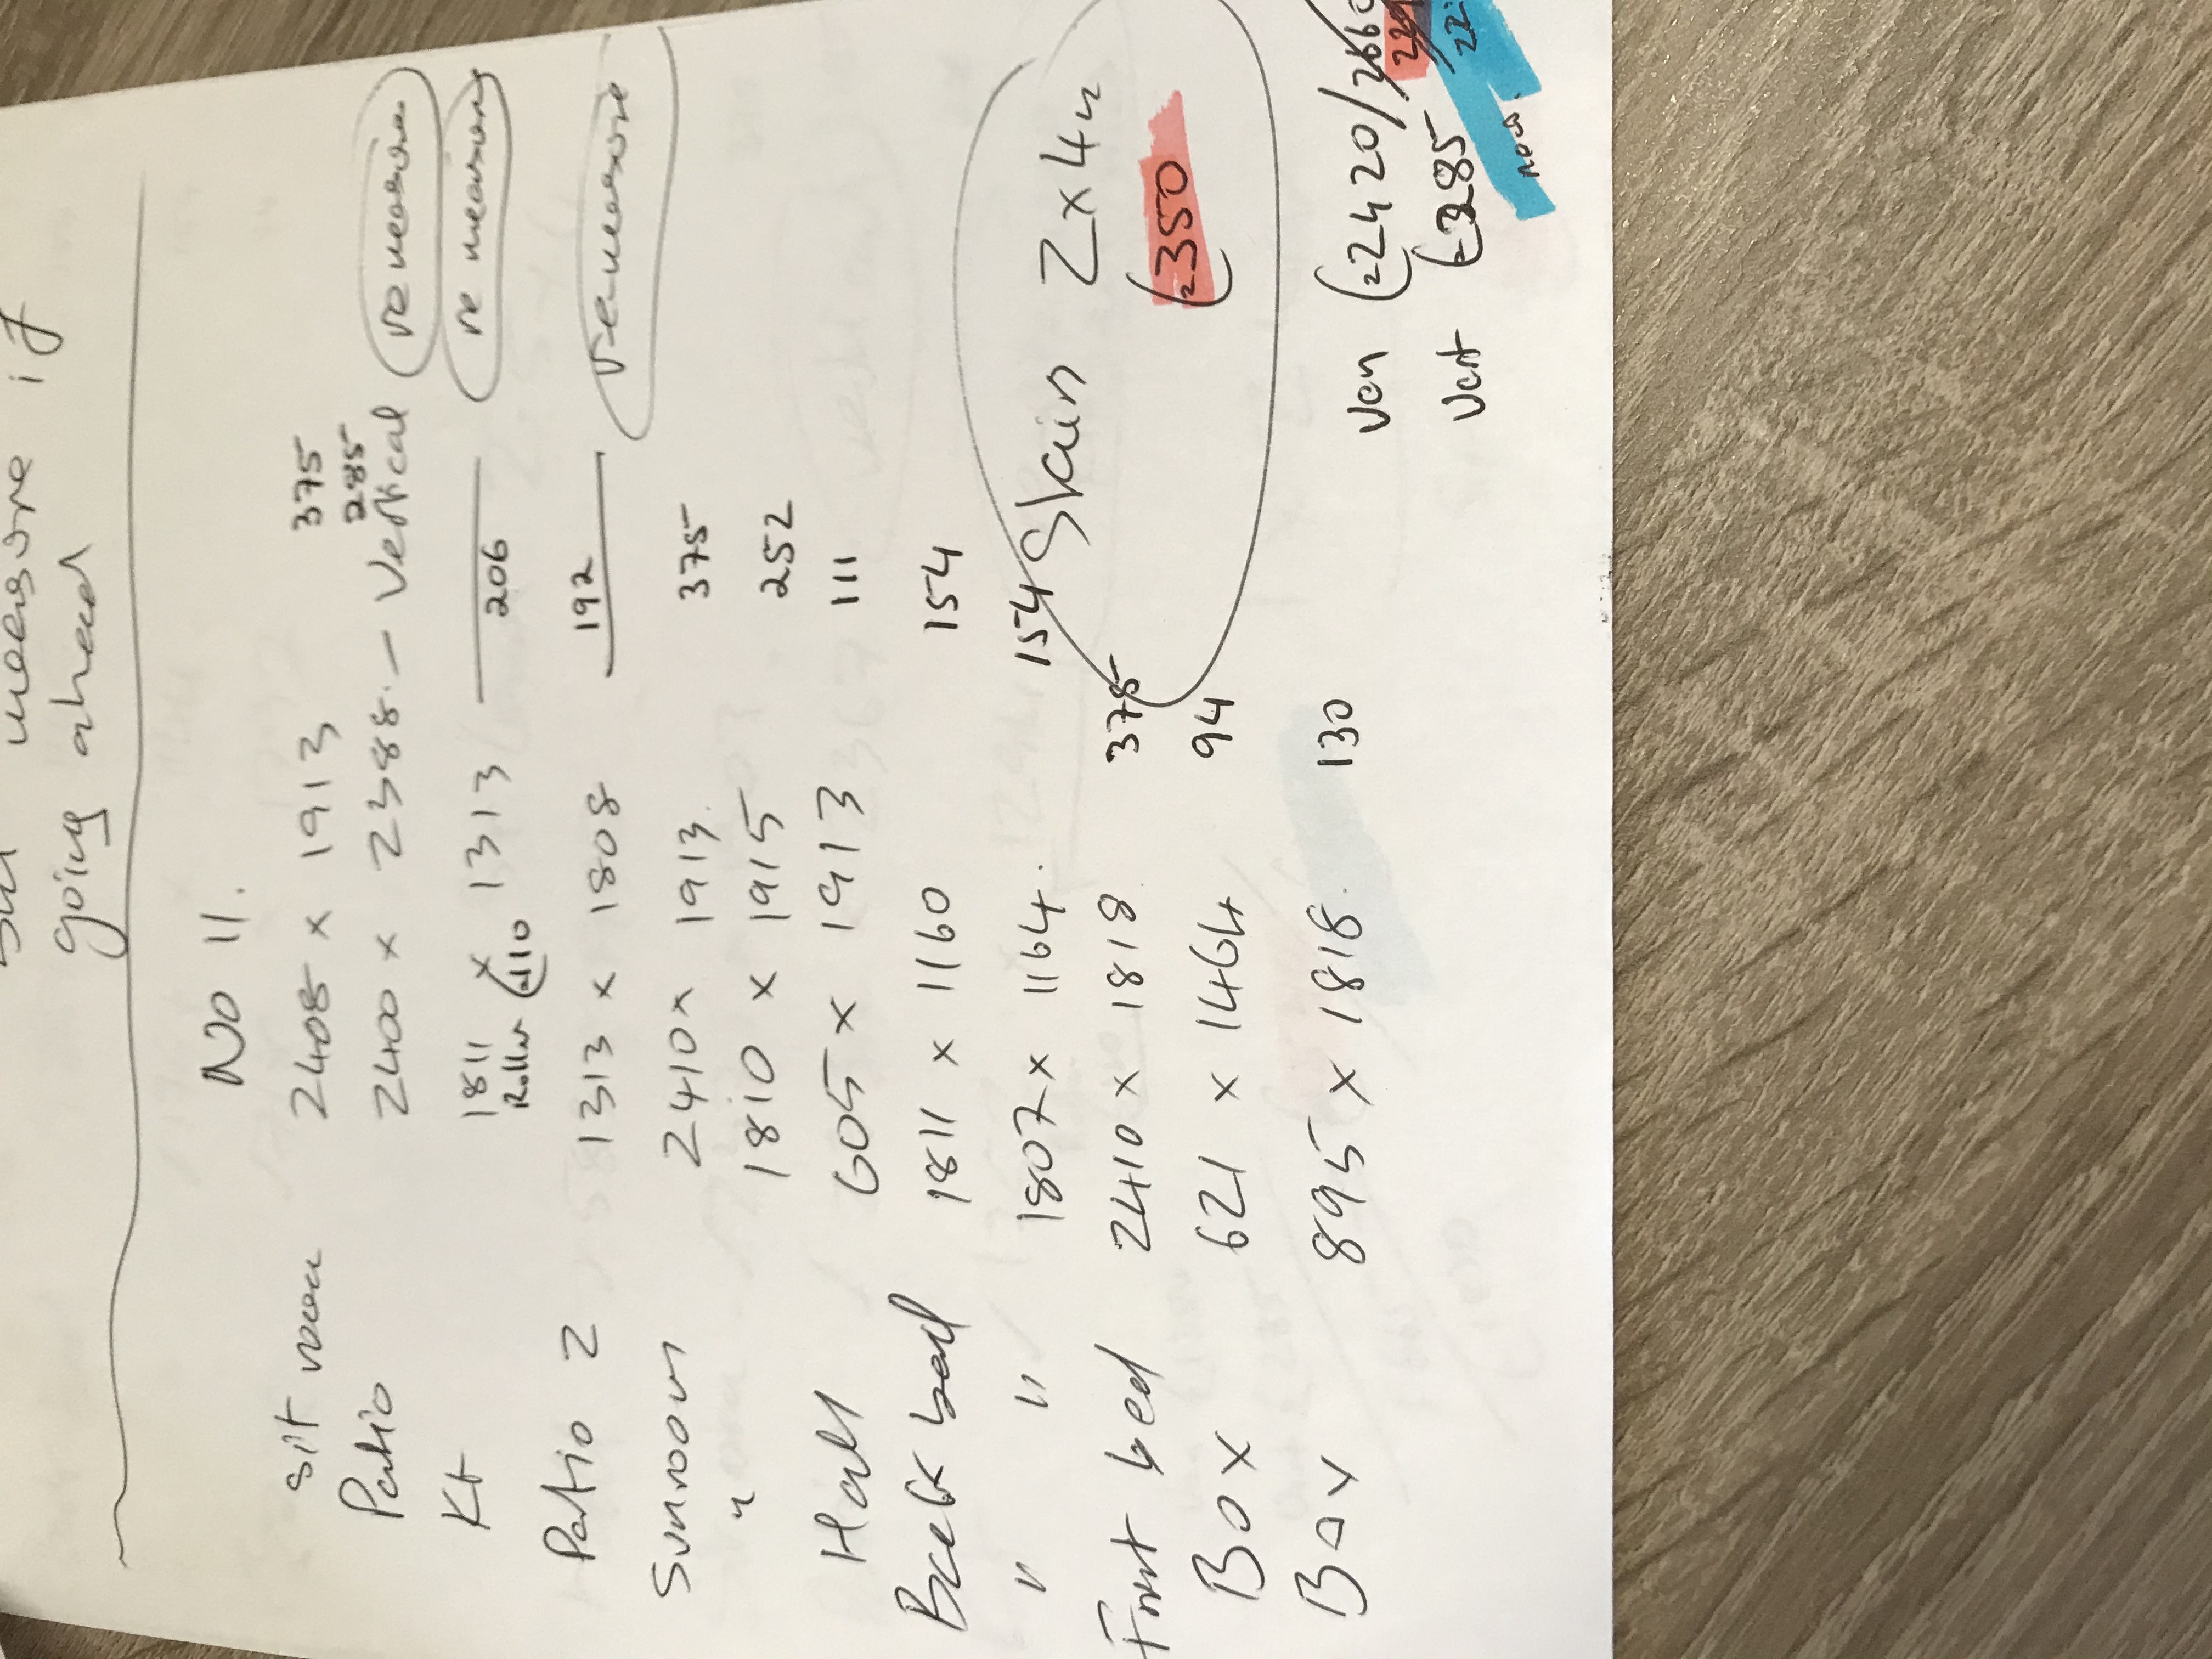 measure if
going ahead
No 11.
Sit room 2408 x 1913 375
Patio 2400 x 2388 - Vertical 285 re measure
Kt 1811 x 1313 206 re measure
Roller £110
Patio 2 1313 x 1808 192 re measure
Sunroom 2410 x 1913 375
" 1810 x 1915 252
Hall 605 x 1913 111
Back bed 1811 x 1160 154
" " 1807 x 1164 154
Stain 2 x 4
£350
Front bed 2410 x 1818 375
Box 621 x 1464 94
Box 895 x 1818 130
Ven £2420/
Vert £285